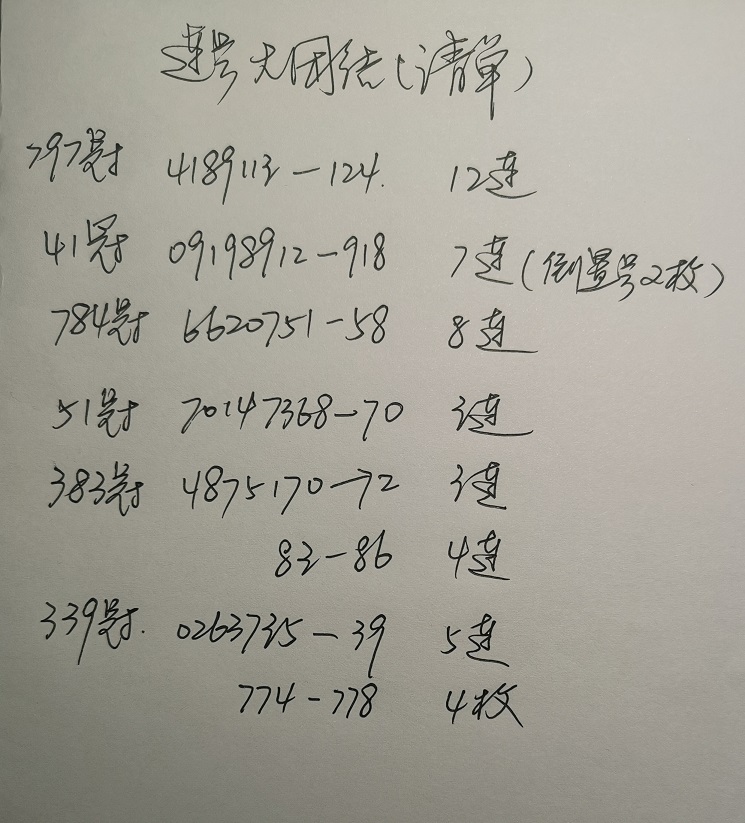 连号大团结(清单)
797冠 4189113-124. 12连
41冠 09198912-918 7连(倒置号2枚)
784冠 6620751-58 8连
51冠 70147368-70 3连
383冠 4875170-72 3连
83-86 4连
339冠. 0263735-39 5连
774-778 4枚